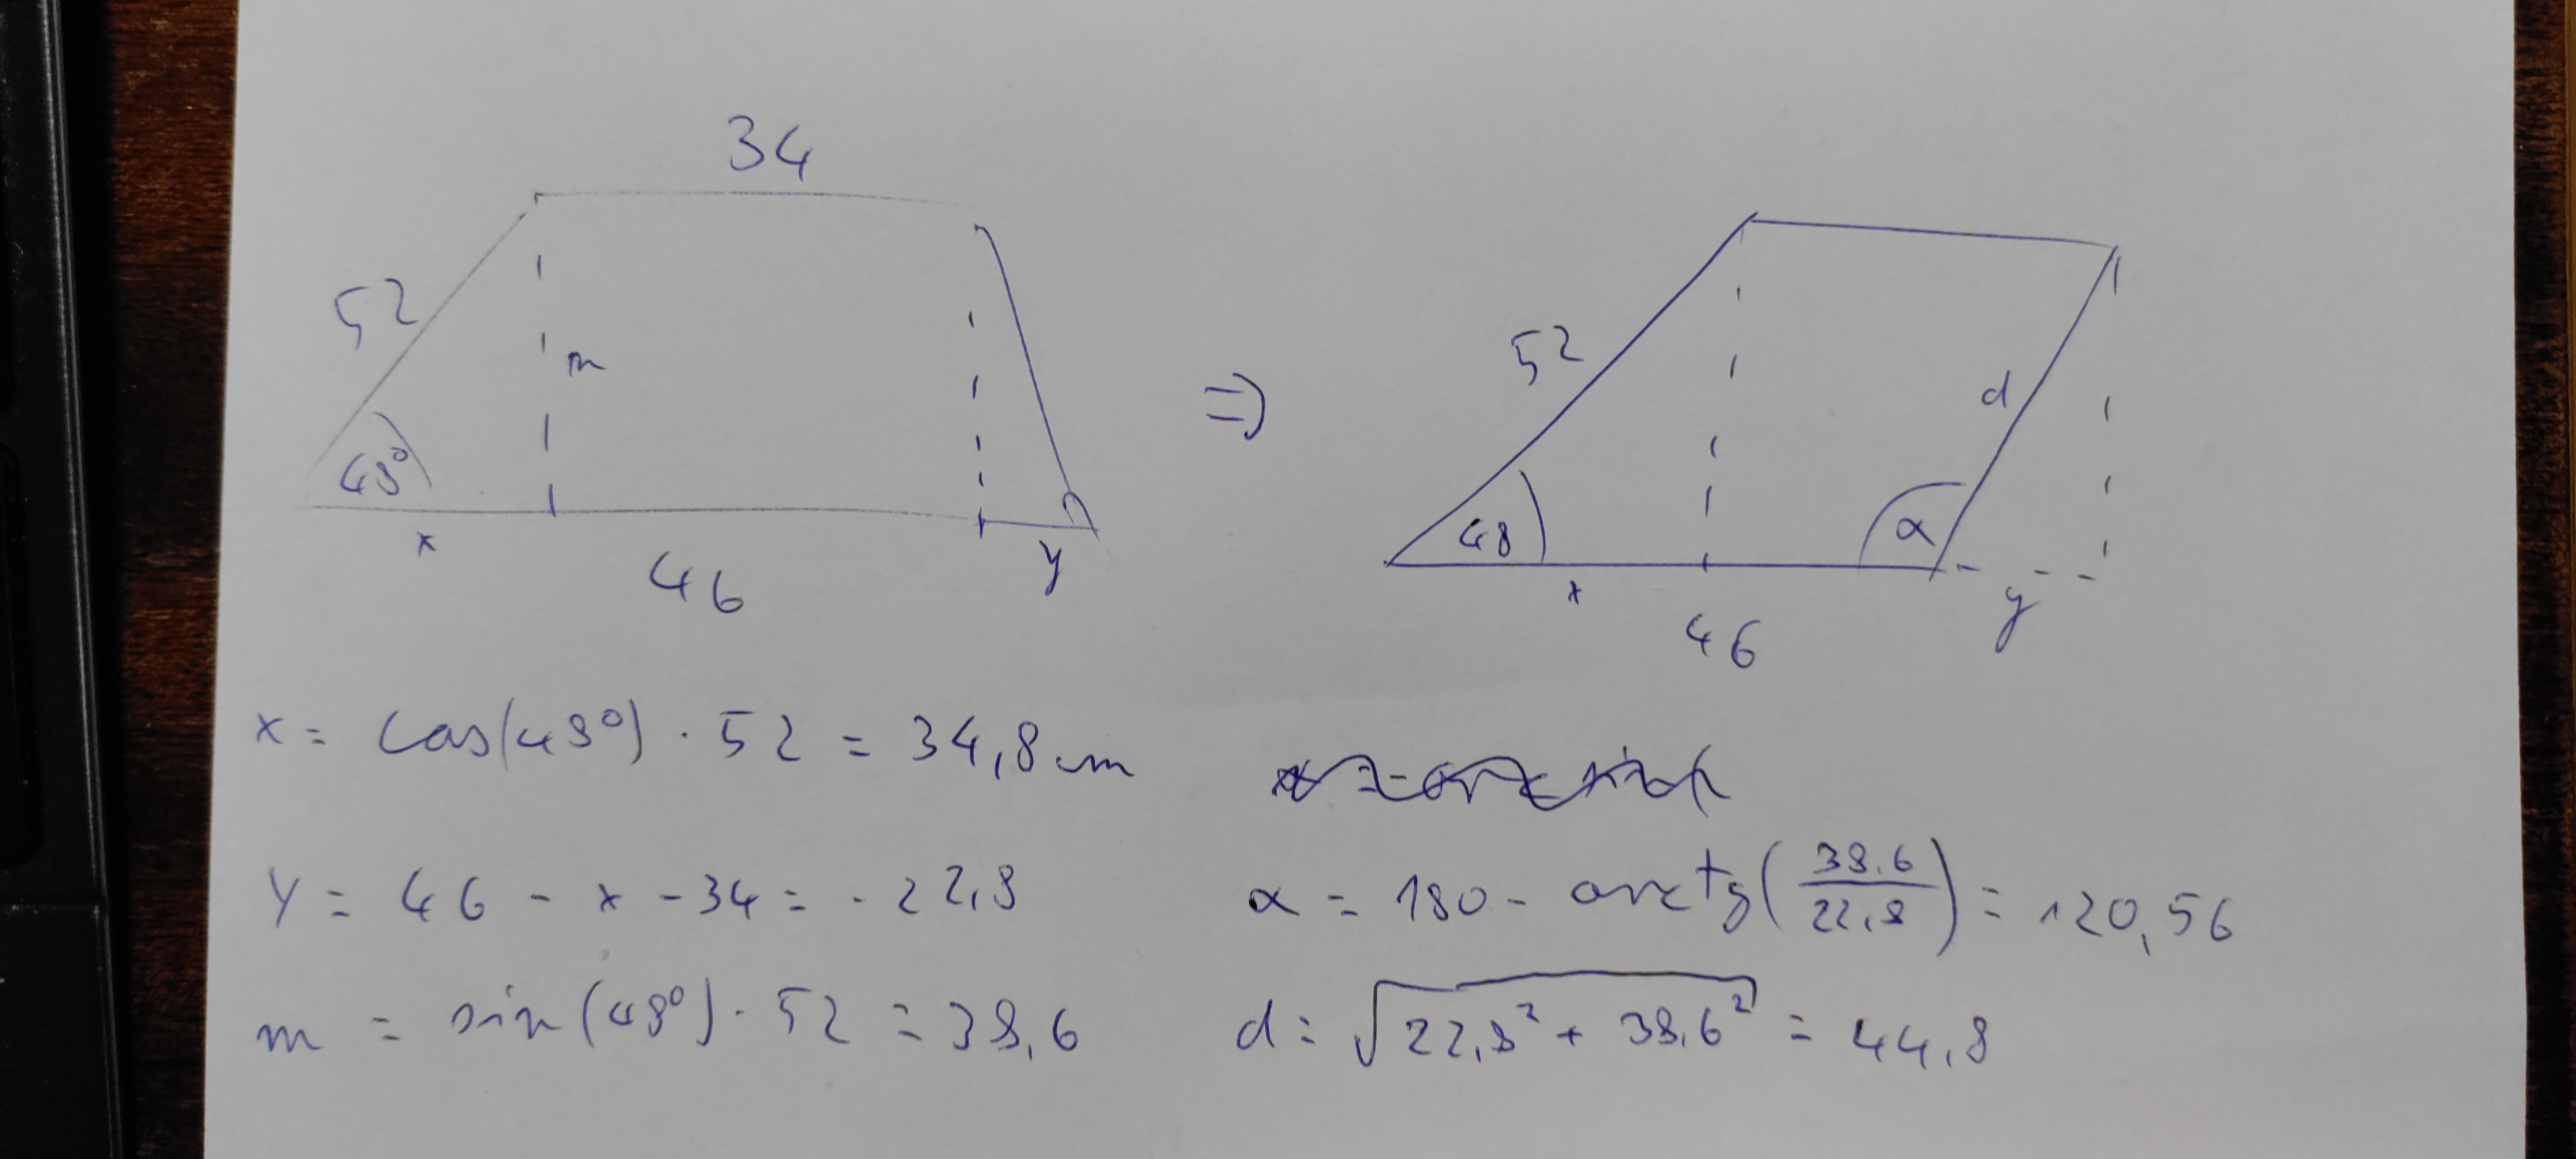 34
52
m
48°
x
46
y
⇒
52
d
48
α
x
46
y
x = cos(48°) · 52 = 34,8 cm
y = 46 - x - 34 = -22,8
m = sin(48°) · 52 = 38,6
α = 180 - arctg(38.6/22,8) = 120,56
d = √(22,8² + 38,6²) = 44,8